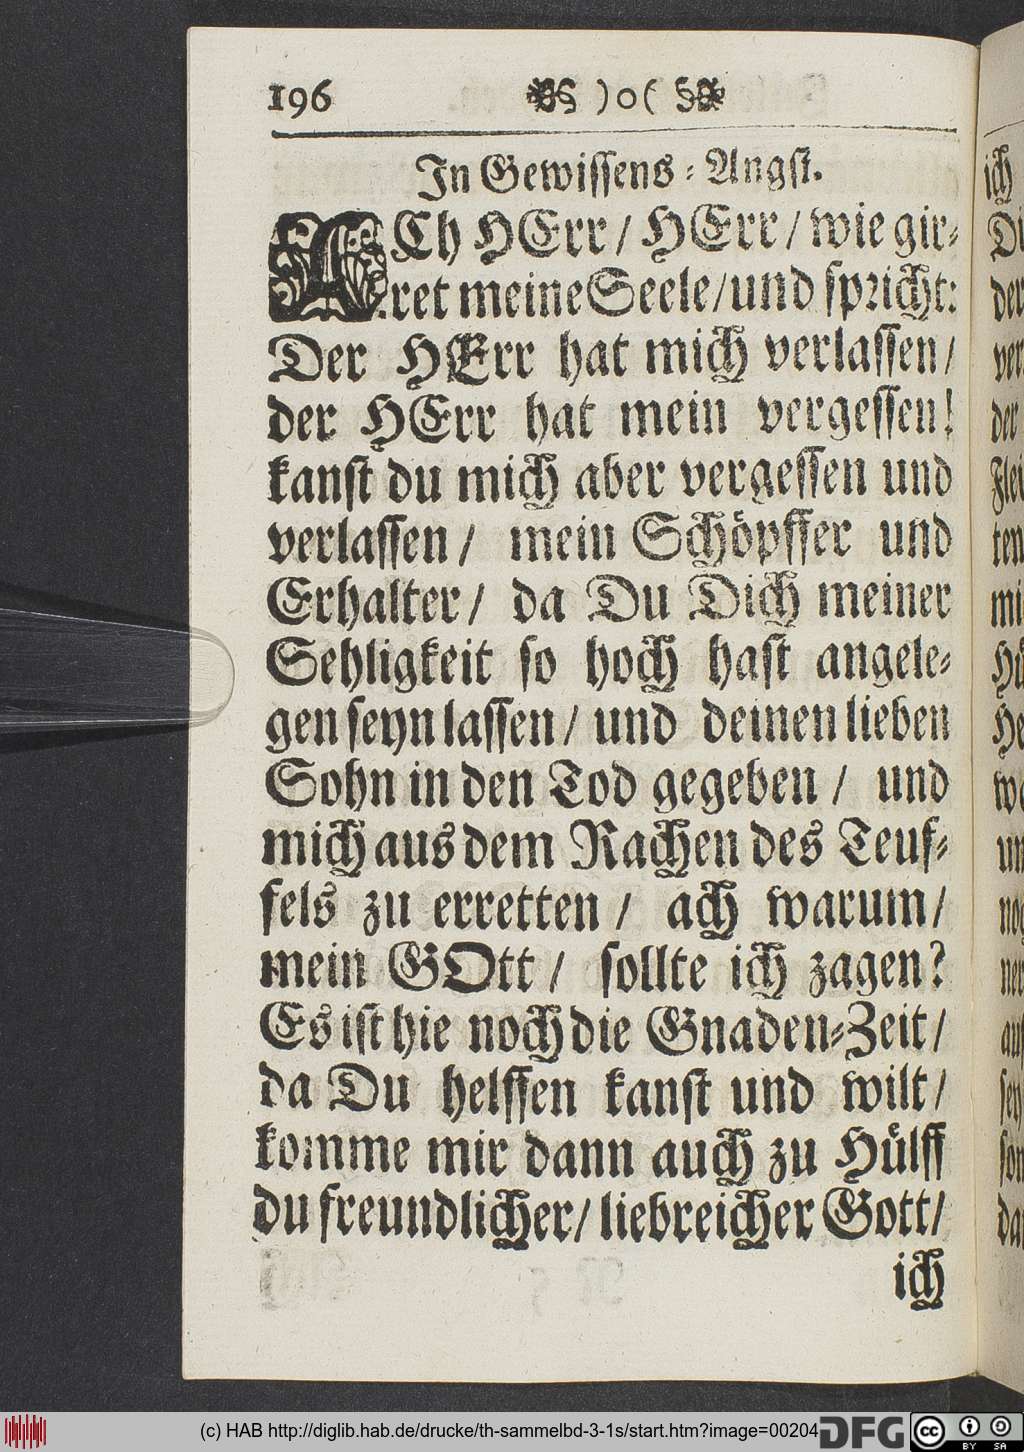 196 )o(
In Gewissens-Angst.
ACh HErr / HErr / wie gir-
ret meine Seele / und spricht:
Der HErr hat mich verlassen /
der HErr hat mein vergessen!
kanst du mich aber vergessen und
verlassen / mein Schöpffer und
Erhalter / da Du Dich meiner
Sehligkeit so hoch hast angele-
gen seyn lassen / und deinen lieben
Sohn in den Tod gegeben / und
mich aus dem Rachen des Teuf-
fels zu erretten / ach warum /
mein GOtt / sollte ich zagen?
Es ist hie noch die Gnaden-Zeit /
da Du helffen kanst und wilt /
komme mir dann auch zu Hülff
du freundlicher / liebreicher Gott /
ich
(c) HAB http://diglib.hab.de/drucke/th-sammelbd-3-1s/start.htm?image=00204
DFG
cc BY SA